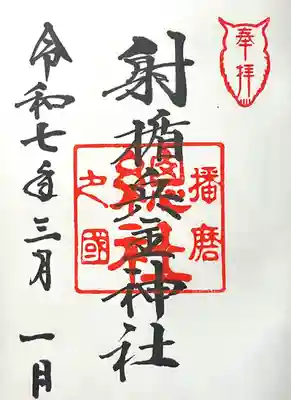 奉拝
播磨
射楯兵主神社
之國
令和七年三月一日